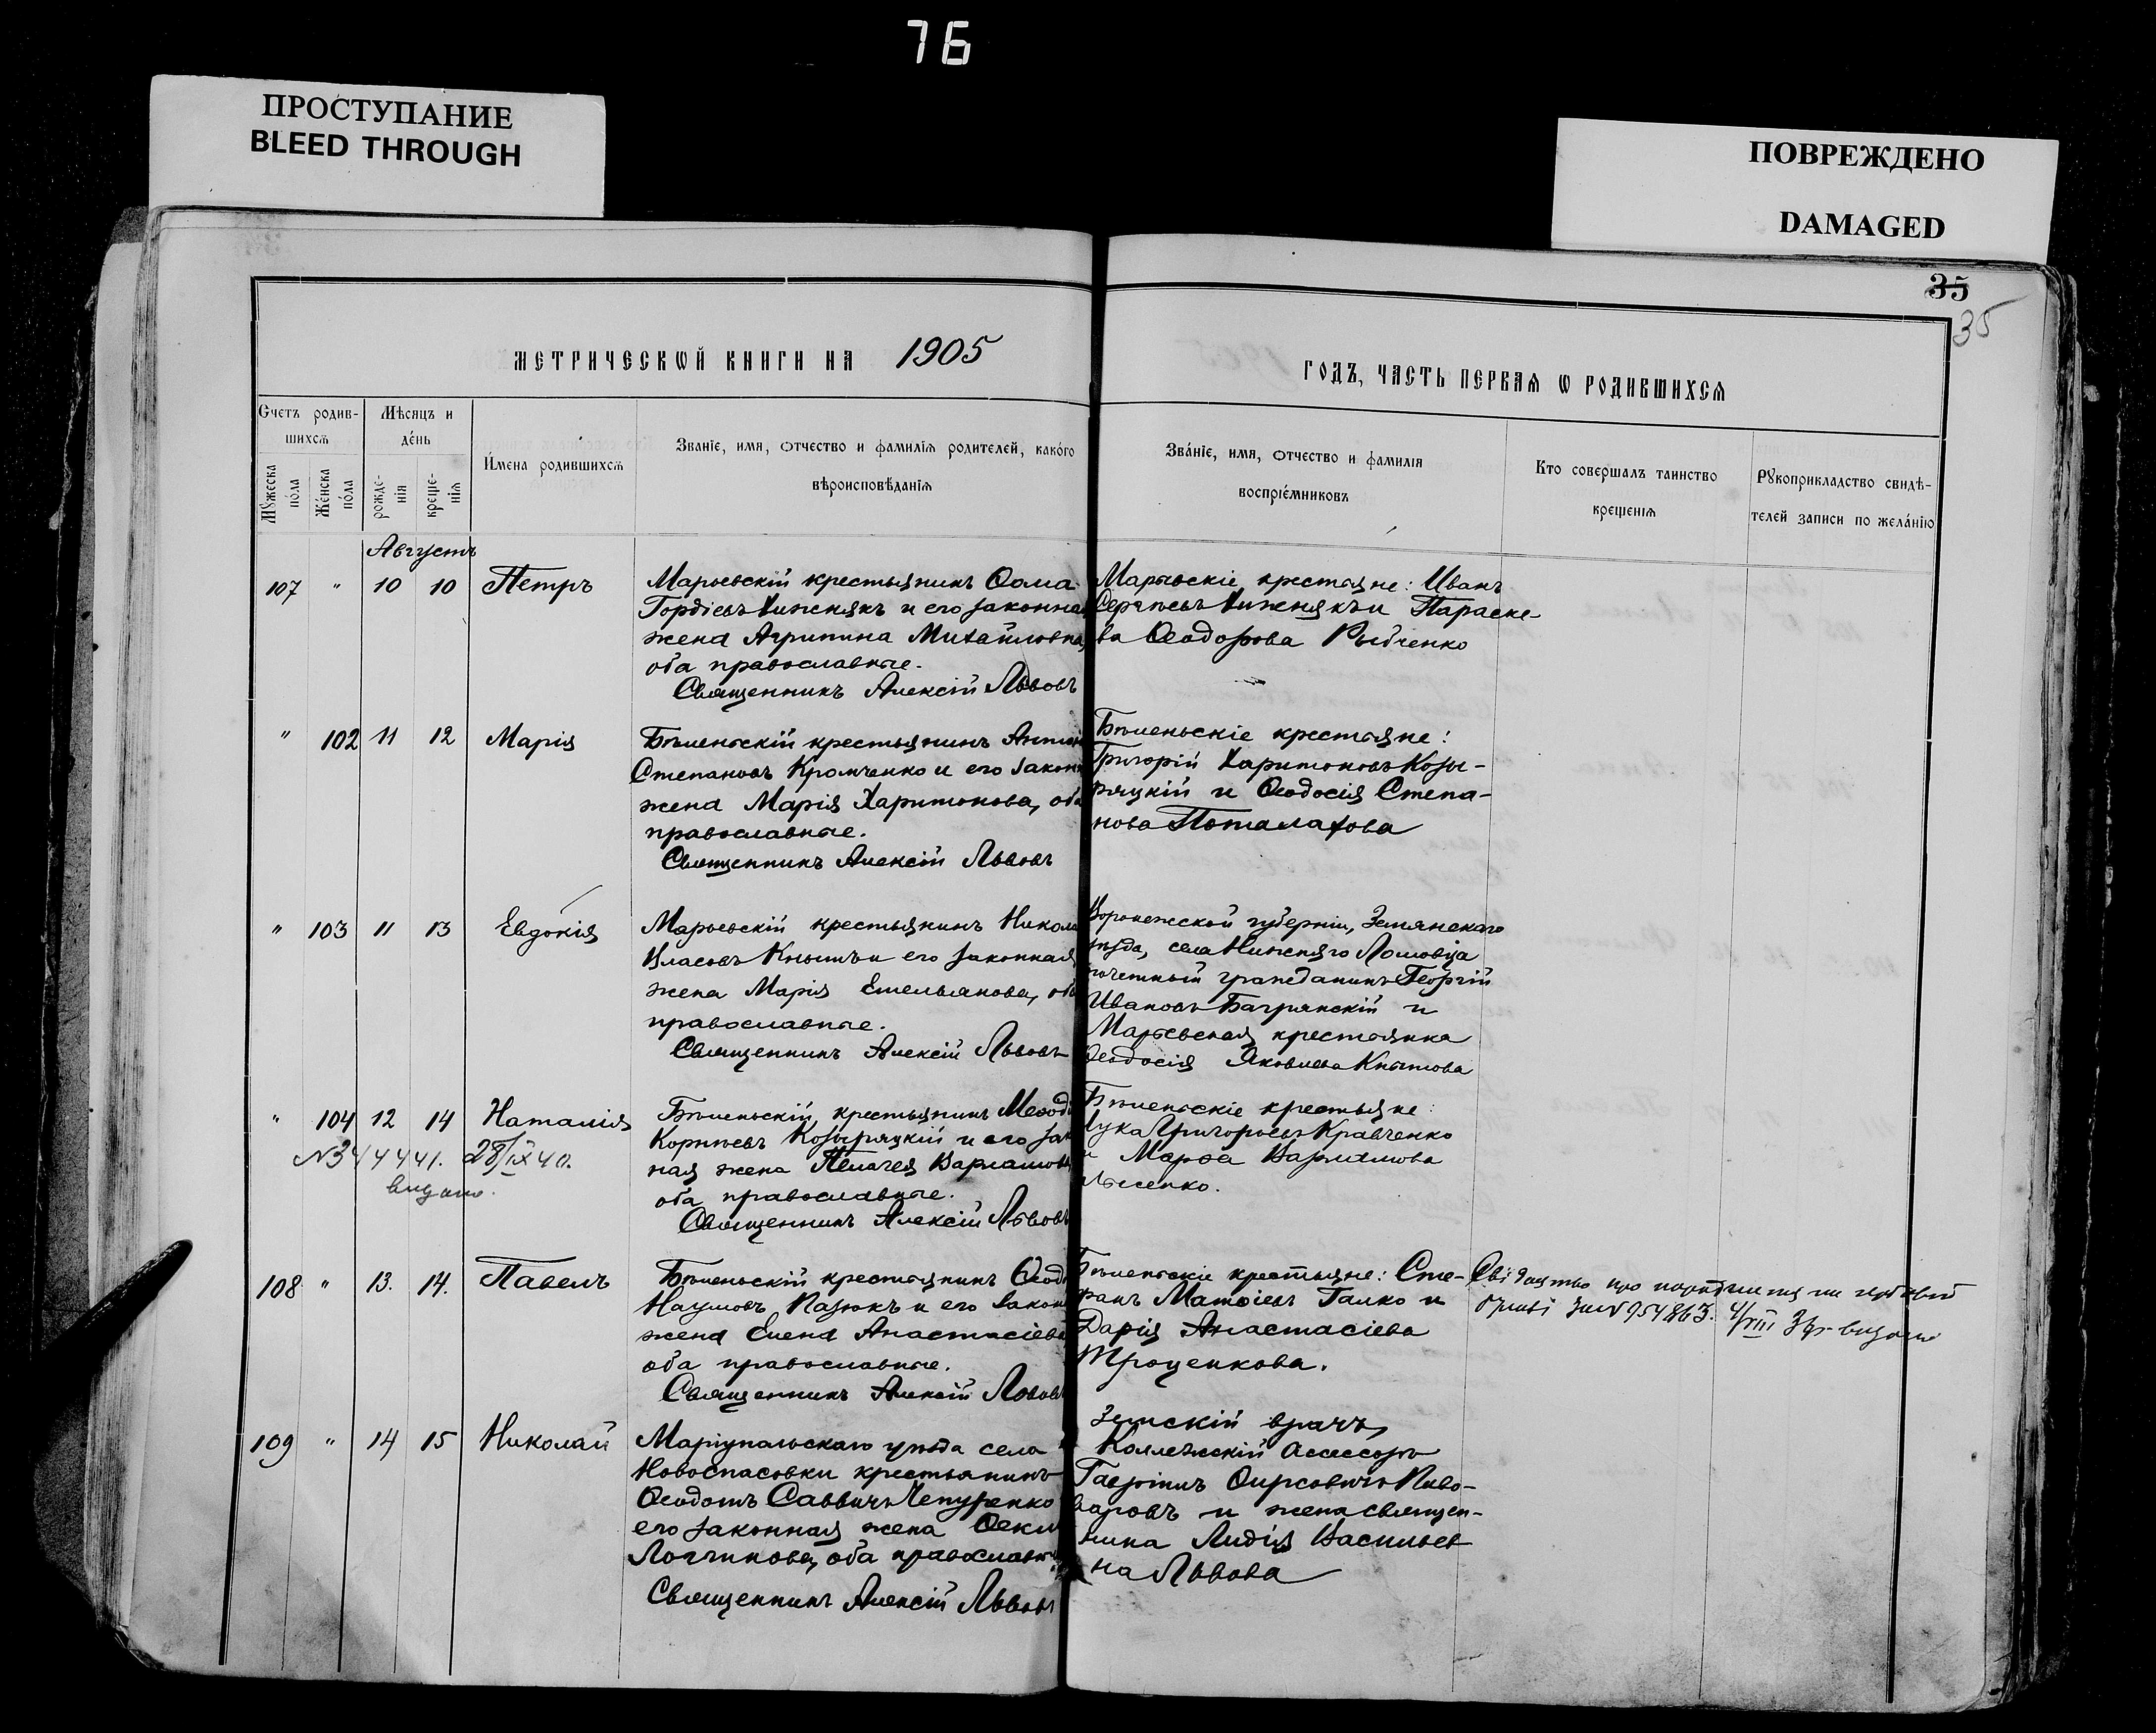 76
ПРОСТУПАНИЕ
BLEED THROUGH
ПОВРЕЖДЕНО
DAMAGED
35
35
МЕТРИЧЕСКѠЙ КНИГИ НА 1905
ГОДЪ, ЧАСТЬ ПЕРВАѦ Ѡ РОДИВШИХСѦ
Счетъ родив-
шихсѧ
Мѣсяцъ и
де́нь
Мꙋжеска
по́ла
Же́нска
по́ла
рожде-
нія
креще-
ніѧ
И́мена родившихсѧ
Званіе, имя, отчество и фамиліѧ родителей, како́го
вѣроисповѣданіѧ
Зва́ніе, имя, отчество и фамилія
воспріе́мниковъ
Кто совершалъ таинство
крещеніѧ
Рꙋкоприкладство свидѣ-
телей записи по жела́нію
Августъ
107 " 10 10 Петръ
Марьевскій крестьянинъ Ѳома
Гордіевъ Хижнякъ и его законная
жена Агрипина Михайловна,
оба православные.
Священникъ Алексій Львовъ
Марьевскіе крестьяне: Иванъ
Сергѣевъ Хижнякъ и Параске-
ва Ѳеодорова Рыбченко
" 102 11 12 Марія
Бѣленьскій крестьянинъ Антон
Степановъ Кромченко и его закон
жена Марія Харитонова, оба
православные.
Священникъ Алексій Львовъ
Бѣленьскіе крестьяне:
Григорій Харитоновъ Козы-
ряцкій и Ѳеодосія Степа-
нова Поталахова
" 103 11 13 Евдокія
Марьевскій крестьянинъ Никола
Власовъ Кнышъ и его законная
жена Марія Емельянова, оба
православные.
Священникъ Алексій Львовъ
Воронежской губерніи, Землянскаго
уѣзда, села Нижняго Ломовца
почетный гражданинъ Георгій
Ивановъ Багрянскій и
Марьевская крестьянка
Ѳеодосія Яковлева Кнышова
" 104 12 14 Наталія
№344441. 28/IX 40.
видано.
Бѣленьскій крестьянинъ Меѳоді
Корнѣевъ Козыряцкій и его зак
ная жена Пелагея Варламова
оба православные.
Священникъ Алексій Львовъ
Бѣленьскіе крестьяне:
Лука Григорьевъ Кравченко
и Марѳа Варламова
Лысенко.
108 " 13. 14. Павелъ
Бѣленьскій крестьянинъ Ѳеод
Наумовъ Пазюкъ и его закон
жена Елена Анастасіева
оба православные.
Священникъ Алексій Львовъ
Бѣленьскіе крестьяне: Сте-
фанъ Матѳіевъ Галко и
Дарія Анастасіева
Троценкова.
Свідоцтво про народження на
за №954863. 4/VIII видано
109 " 14 15 Николай
Маріупольскаго уѣзда села
Новоспасовки крестьянинъ
Ѳеодотъ Саввичъ Чепуренко
его законная жена Ѳекл
Логгинова, оба православн
Священникъ Алексій Львовъ
Земскій врачъ,
Коллежскій Ассессоръ
Гавріилъ Ѳирсовичъ Пиво-
варовъ и жена священ-
ника Лидія Васильев
на Львова